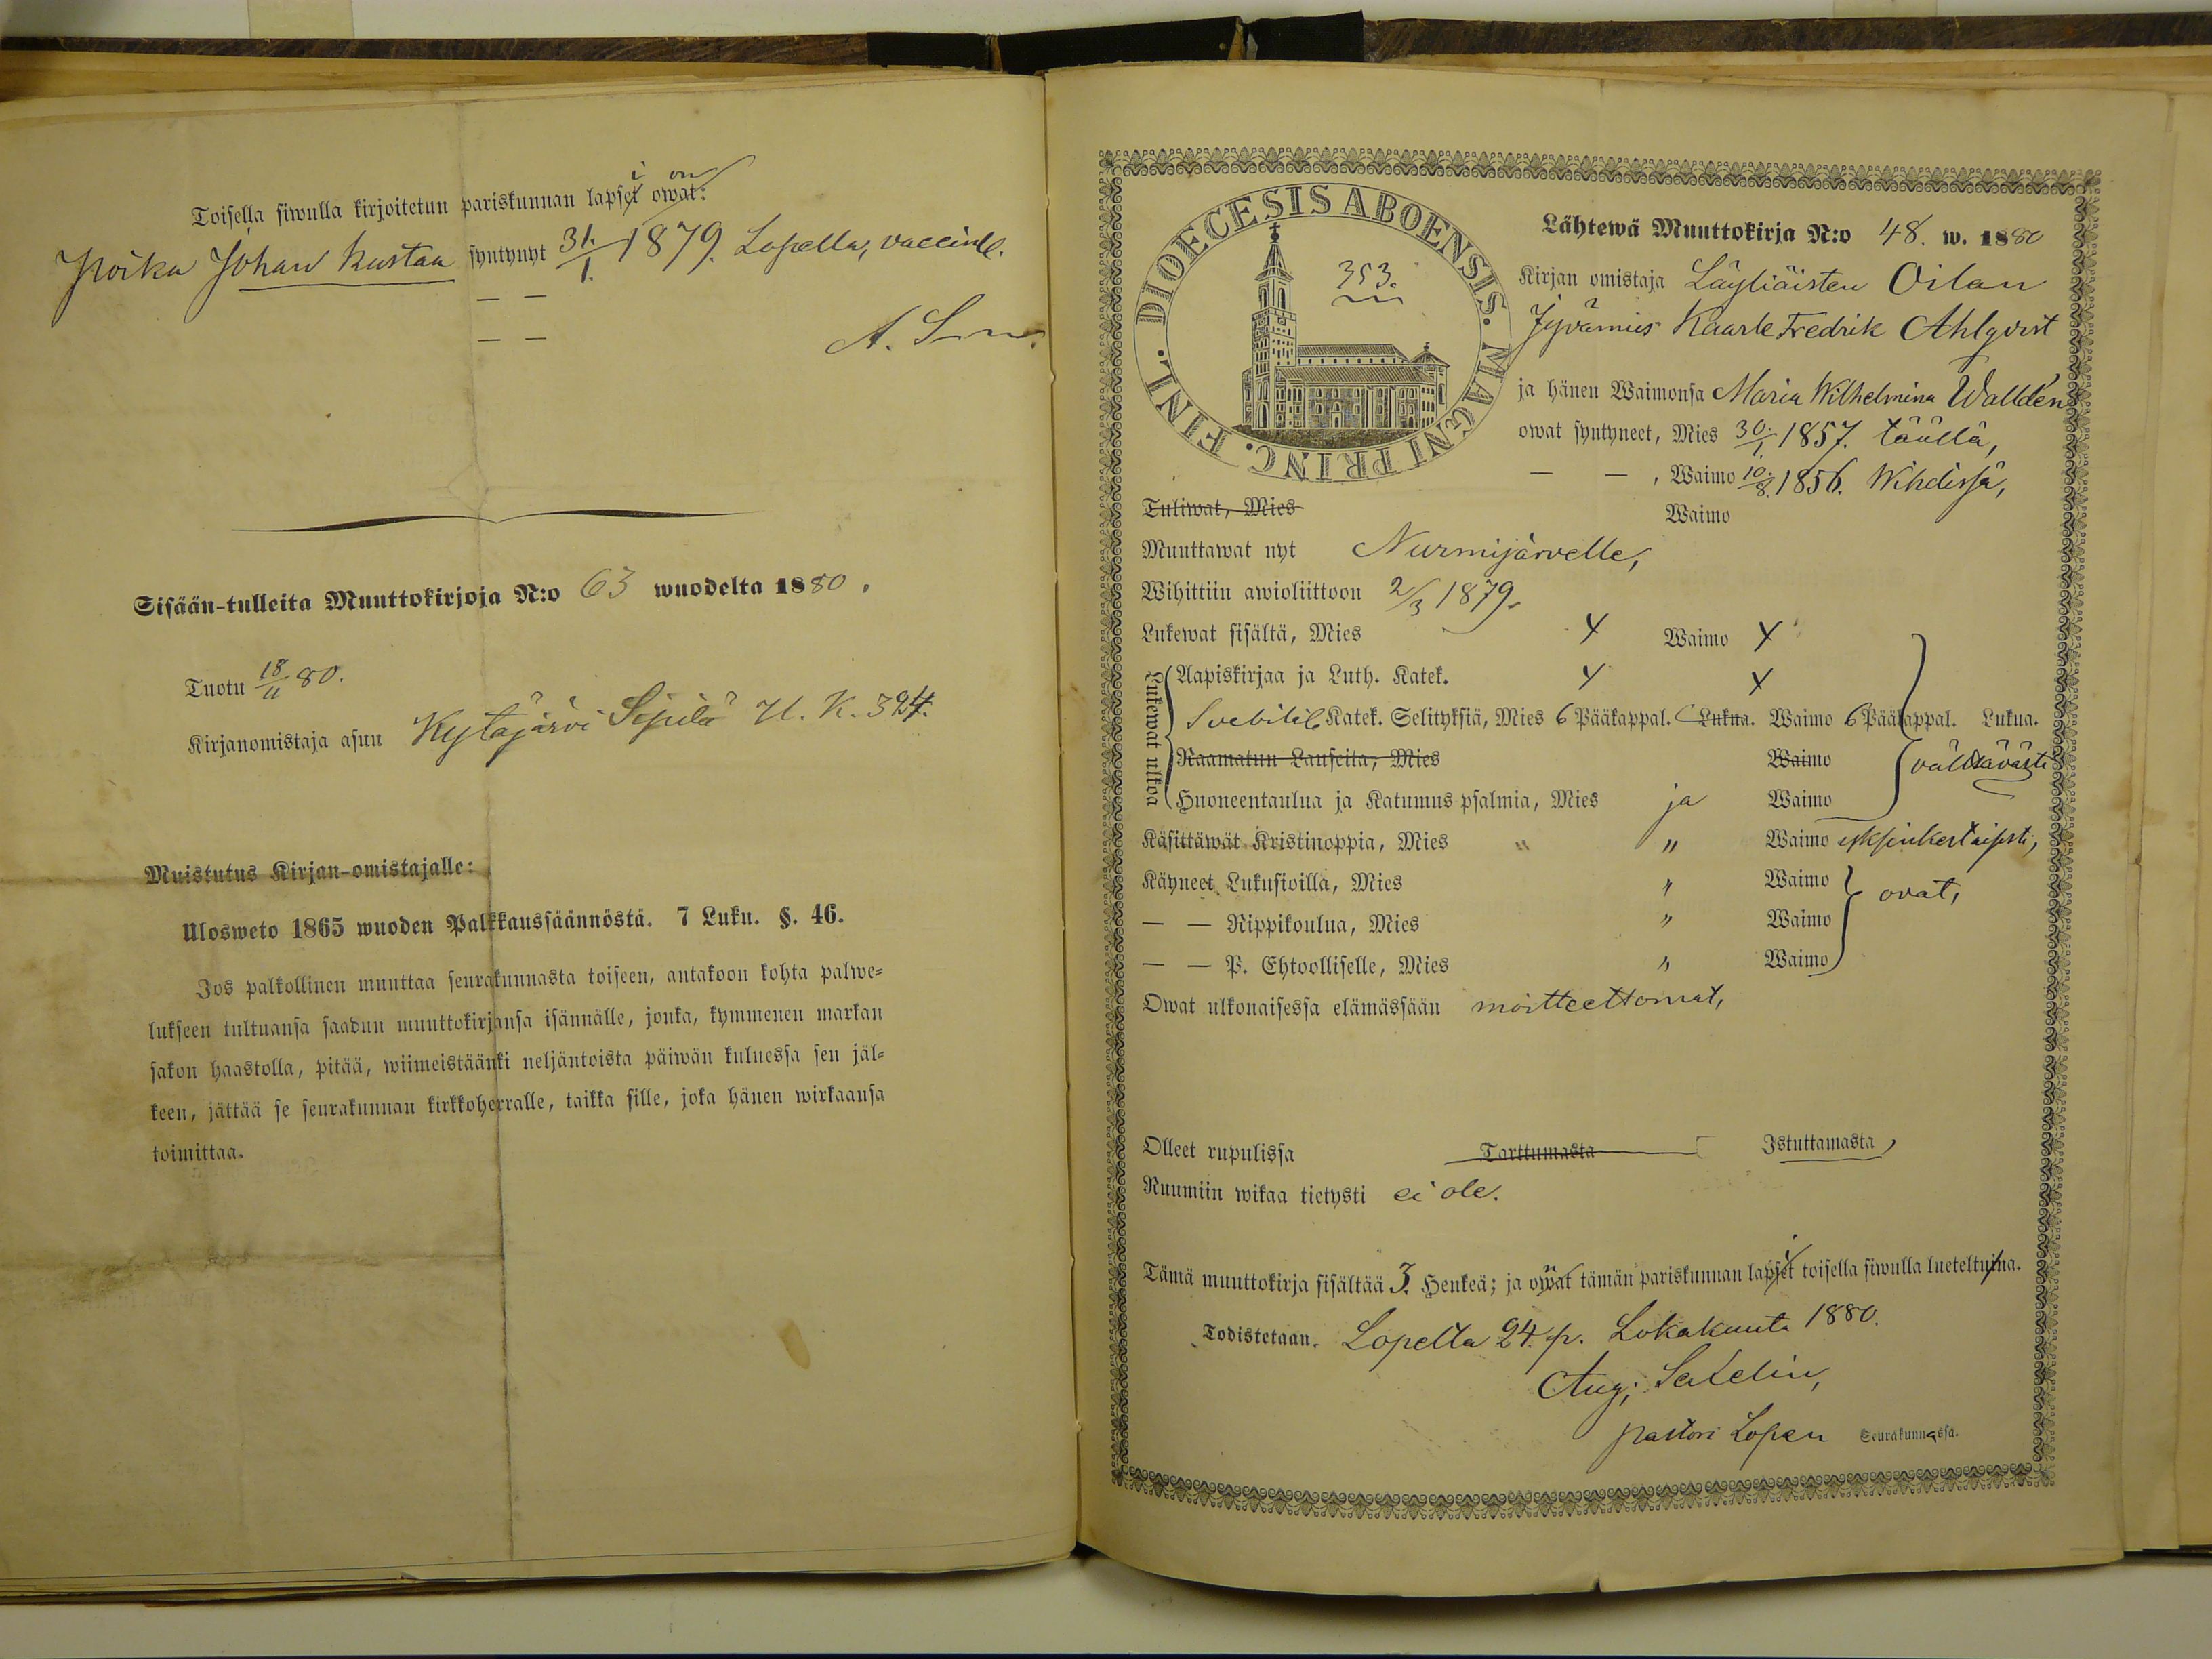 Toisella siwulla kirjoitetun pariskunnan lapset i owat: on
Poika Johan Kustaa syntynyt 31/1. 1879. Lopella, vaccind.
— —
— —
A. S—n.
Sisään-tulleita Muuttokirjoja N:o 63 wuodelta 1880.
Tuotu 18/11 80.
Kirjanomistaja asuu Kytäjärvi Sepilä U. K. 324.
Muistutus Kirjan-omistajalle:
Ulosweto 1865 wuoden Palkkaussäännöstä. 7 Luku. §. 46.
Jos palkollinen muuttaa seurakunnasta toiseen, antakoon kohta palwe=
lukseen tultuansa saadun muuttokirjansa isännälle, jonka, kymmenen markan
sakon haastolla, pitää, wiimeistäänki neljäntoista päiwän kuluessa sen jäl=
keen, jättää se seurakunnan kirkkoherralle, taikka sille, joka hänen wirkaansa
toimittaa.
DIOECESIS ABOENSIS. MAGNI PRINC. FINL.
353.
Lähtewä Muuttokirja N:o 48. w. 1880
Kirjan omistaja Läyliäisten Oilan
Jyvämies Kaarle Fredrik Ahlqvist
ja hänen Waimonsa Maria Wilhelmina Walldén
owat syntyneet, Mies 30/1. 1857. täällä,
— — , Waimo 10/8. 1856. Wihdissä,
Tuliwat, Mies Waimo
Muuttawat nyt Nurmijärvelle,
Wihittiin awioliittoon 2/3 1879.
Lukewat sisältä, Mies x Waimo x
Lukewat ulkoa
Aapiskirjaa ja Luth. Katek. x x
Svebilii Katek. Selityksiä, Mies 6 Pääkappal. Lukua. Waimo 6 Pääkappal. Lukua.
Raamatun Lauseita, Mies Waimo välttävästi
Huoneentaulua ja Katumus psalmia, Mies ja Waimo
Käsittäwät Kristinoppia, Mies " " Waimo yksinkertaisesti,
Käyneet Lukusioilla, Mies " Waimo ovat,
— — Rippikoulua, Mies " Waimo
— — P. Ehtoolliselle, Mies " Waimo
Owat ulkonaisessa elämässään moitteettomat,
Olleet rupulissa Tarttumasta Istuttamasta,
Ruumiin wikaa tietysti ei ole.
Tämä muuttokirja sisältää 3. Henkeä; ja owat n tämän pariskunnan lapset i toisella siwulla lueteltuina.
Todistetaan. Lopella 24. p. Lokakuuta 1880.
Aug; Sadelin,
pastori Lopen Seurakunnassa.